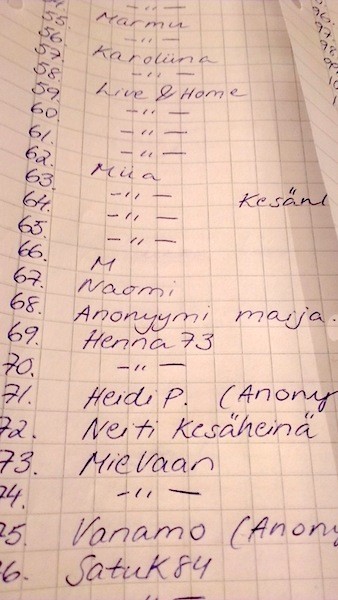 -"-
55. Marmu
56. -"-
57. Karoliina
58. -"-
59. Live & Home
60. -"-
61. -"-
62. -"-
63. Miia
64. -"- Kesänl
65. -"-
66. -"-
M
67. Naomi
68. Anonyymi maija.
69. Henna73
70. -"-
71. Heidi P. (Anony
72. Neiti Kesäheinä
73. MieVaan
74. -"-
75. Vanamo (Anony
76. SatuK84
-"-